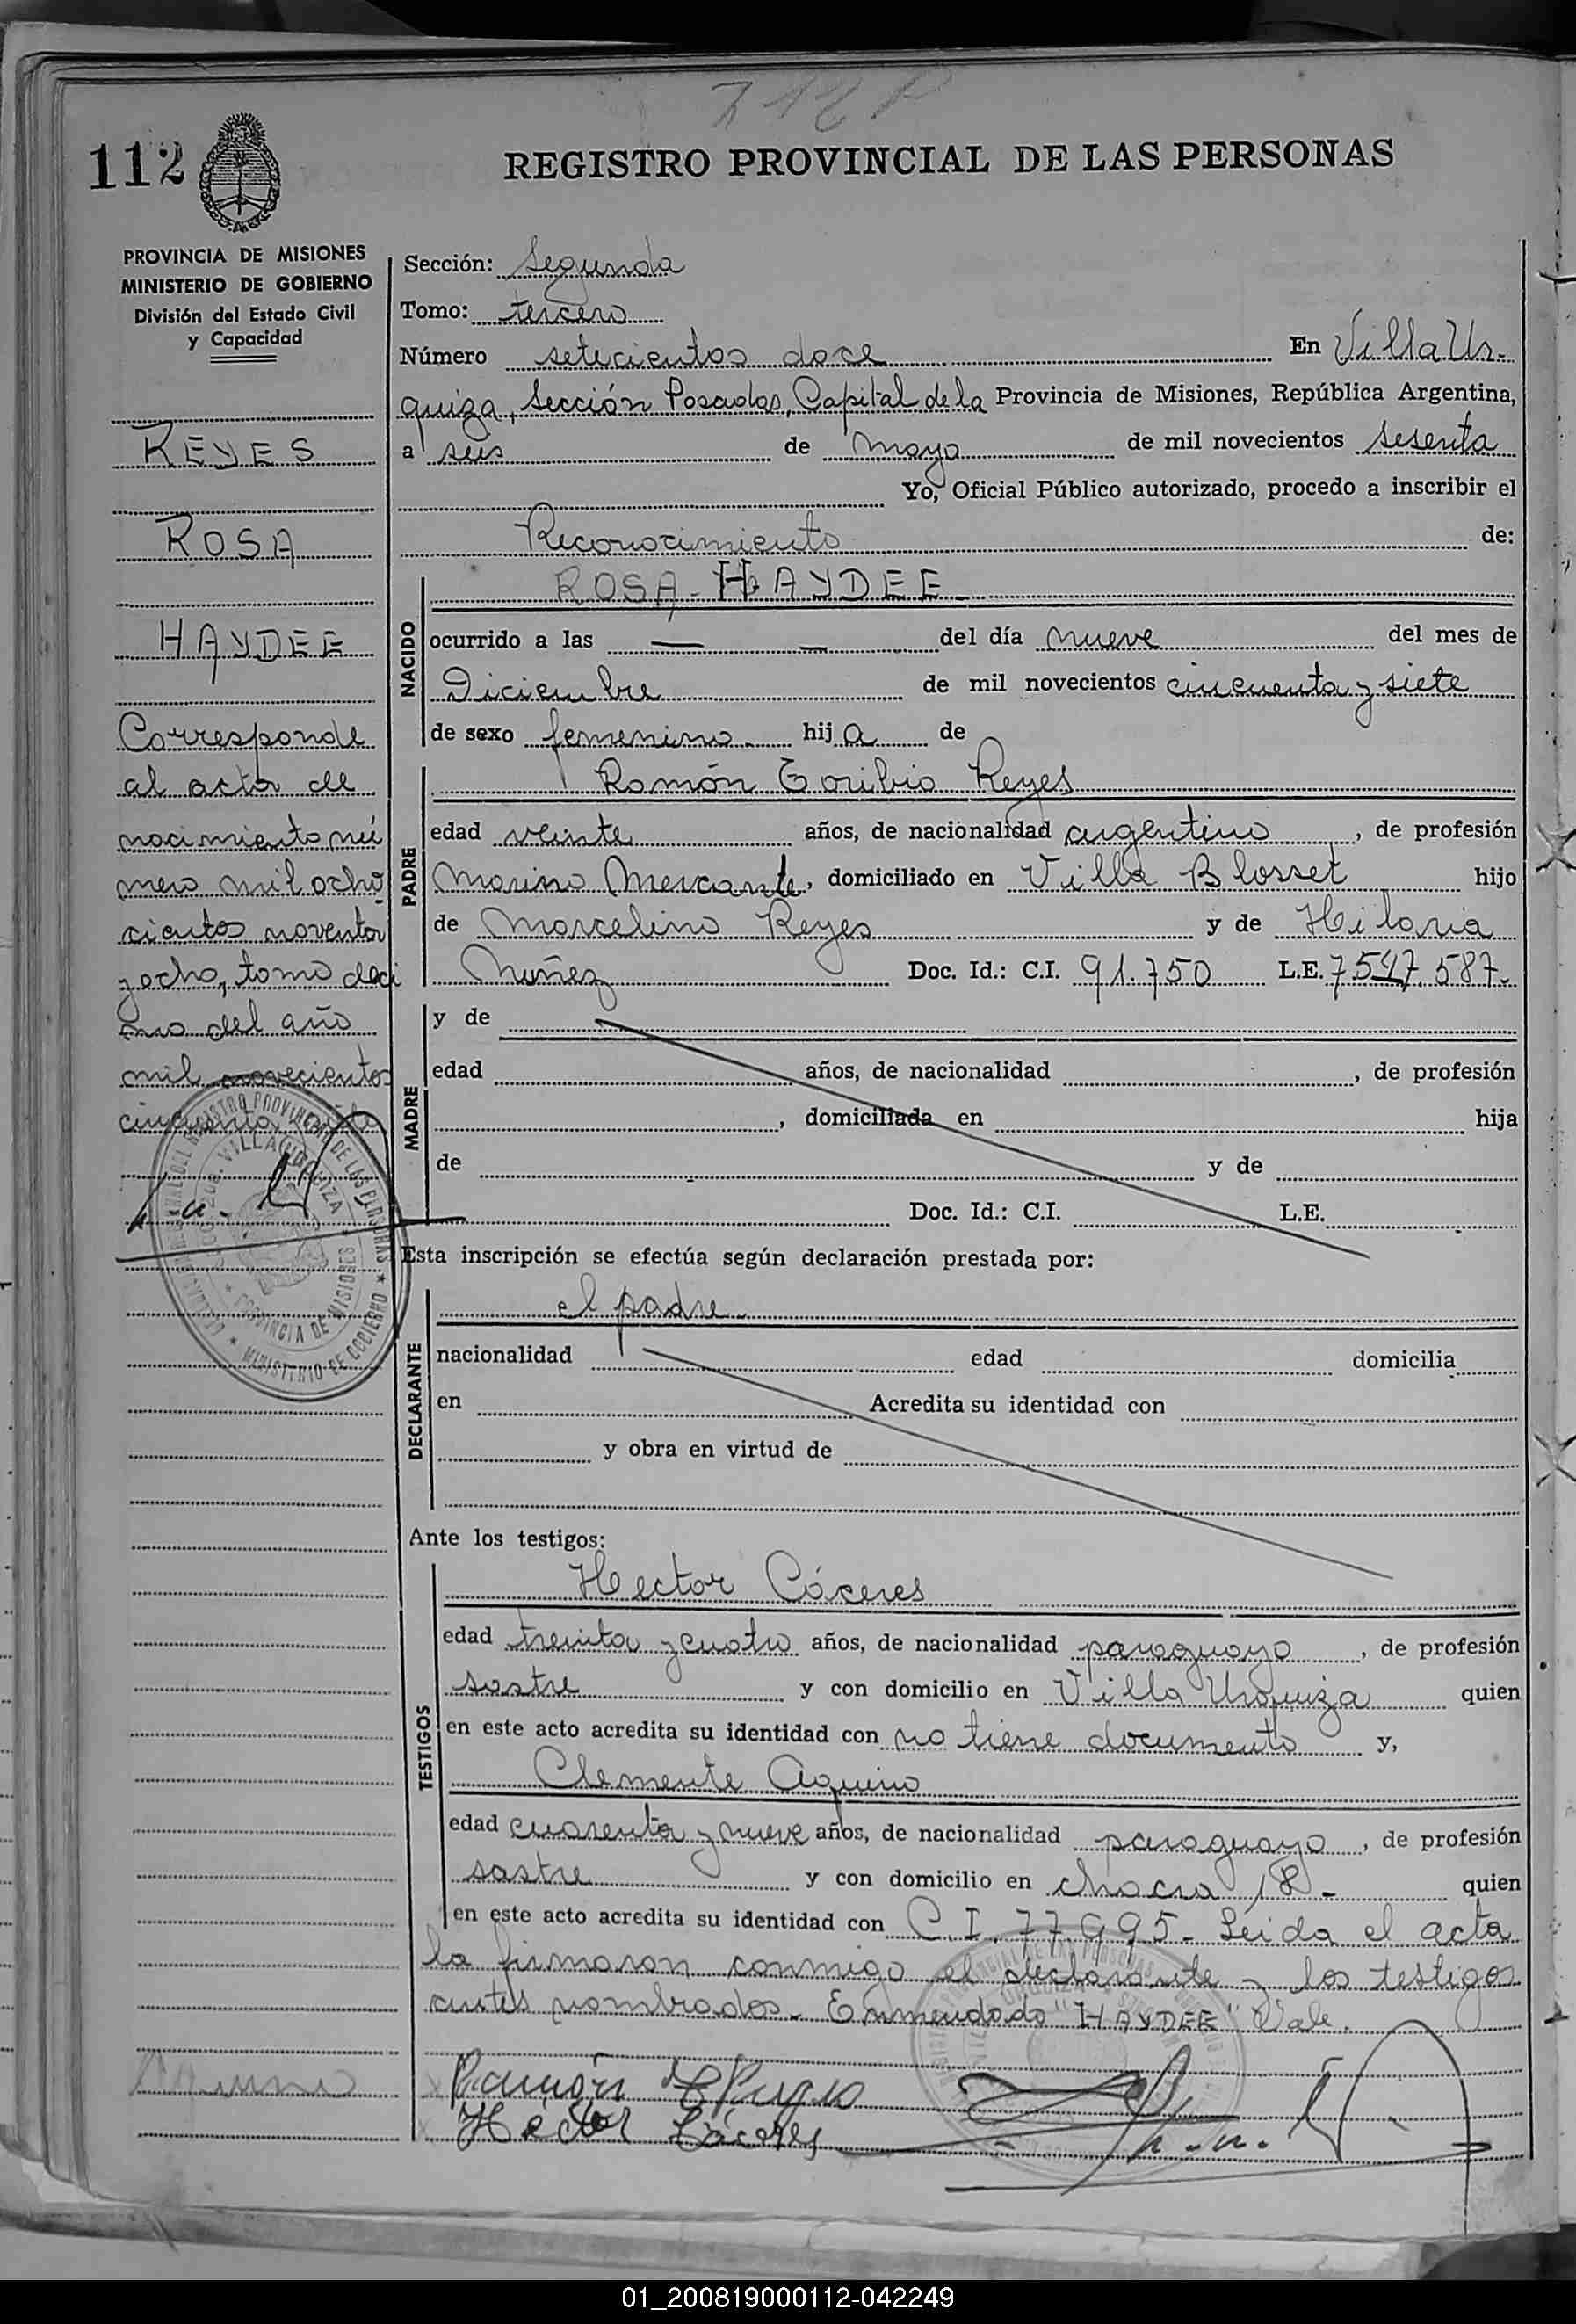 712 P
112
REGISTRO PROVINCIAL DE LAS PERSONAS
PROVINCIA DE MISIONES
MINISTERIO DE GOBIERNO
División del Estado Civil
y Capacidad
REYES
ROSA
HAYDEE
Corresponde
al acta de
nacimiento nú
mero mil ocho
cientos noventa
y ocho, tomo déci
mo del año
mil novecientos
cincuenta
Sección: Segunda
Tomo: tercero
Número setecientos doce En Villa Ur-
quiza, Sección Posadas, Capital de la Provincia de Misiones, República Argentina,
a seis de mayo de mil novecientos sesenta
Yo, Oficial Público autorizado, procedo a inscribir el
Reconocimiento de:
NACIDO
ROSA-HAYDEE-
ocurrido a las — — del día nueve del mes de
Diciembre de mil novecientos cincuenta y siete
de sexo femenino- hija de
PADRE
Ramón Toribio Reyes
edad veinte años, de nacionalidad argentino, de profesión
Marino Mercante, domiciliado en Villa Blosset hijo
de Marcelino Reyes y de Hilaria
Nuñez Doc. Id.: C.I. 91.750 L.E. 7.547.587-
MADRE
y de
edad años, de nacionalidad , de profesión
, domiciliada en hija
de y de
Doc. Id.: C.I. L.E.
Esta inscripción se efectúa según declaración prestada por:
DECLARANTE
el padre-
nacionalidad edad domicilia
en Acredita su identidad con
y obra en virtud de
Ante los testigos:
TESTIGOS
Hector Cáceres
edad treinta y cuatro años, de nacionalidad paraguayo, de profesión
sastre y con domicilio en Villa Urquiza quien
en este acto acredita su identidad con no tiene documento y,
Clemente Aquino
edad cuarenta y nueve años, de nacionalidad paraguayo, de profesión
sastre y con domicilio en chacra 18- quien
en este acto acredita su identidad con C.I. 77.995- Leida el acta
la firmaron conmigo el declarante y los testigos
antes nombrados- Enmendado "HAYDEE" Vale.
Ramón T Reyes
Héctor Cáceres
01_200819000112-042249